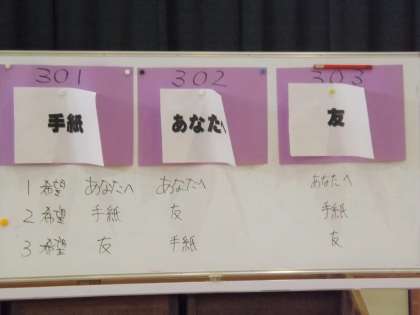 301 302 303
手紙 あなたへ 友
1 希望 あなたへ あなたへ あなたへ
2 希望 手紙 友 手紙
3 希望 友 手紙 友